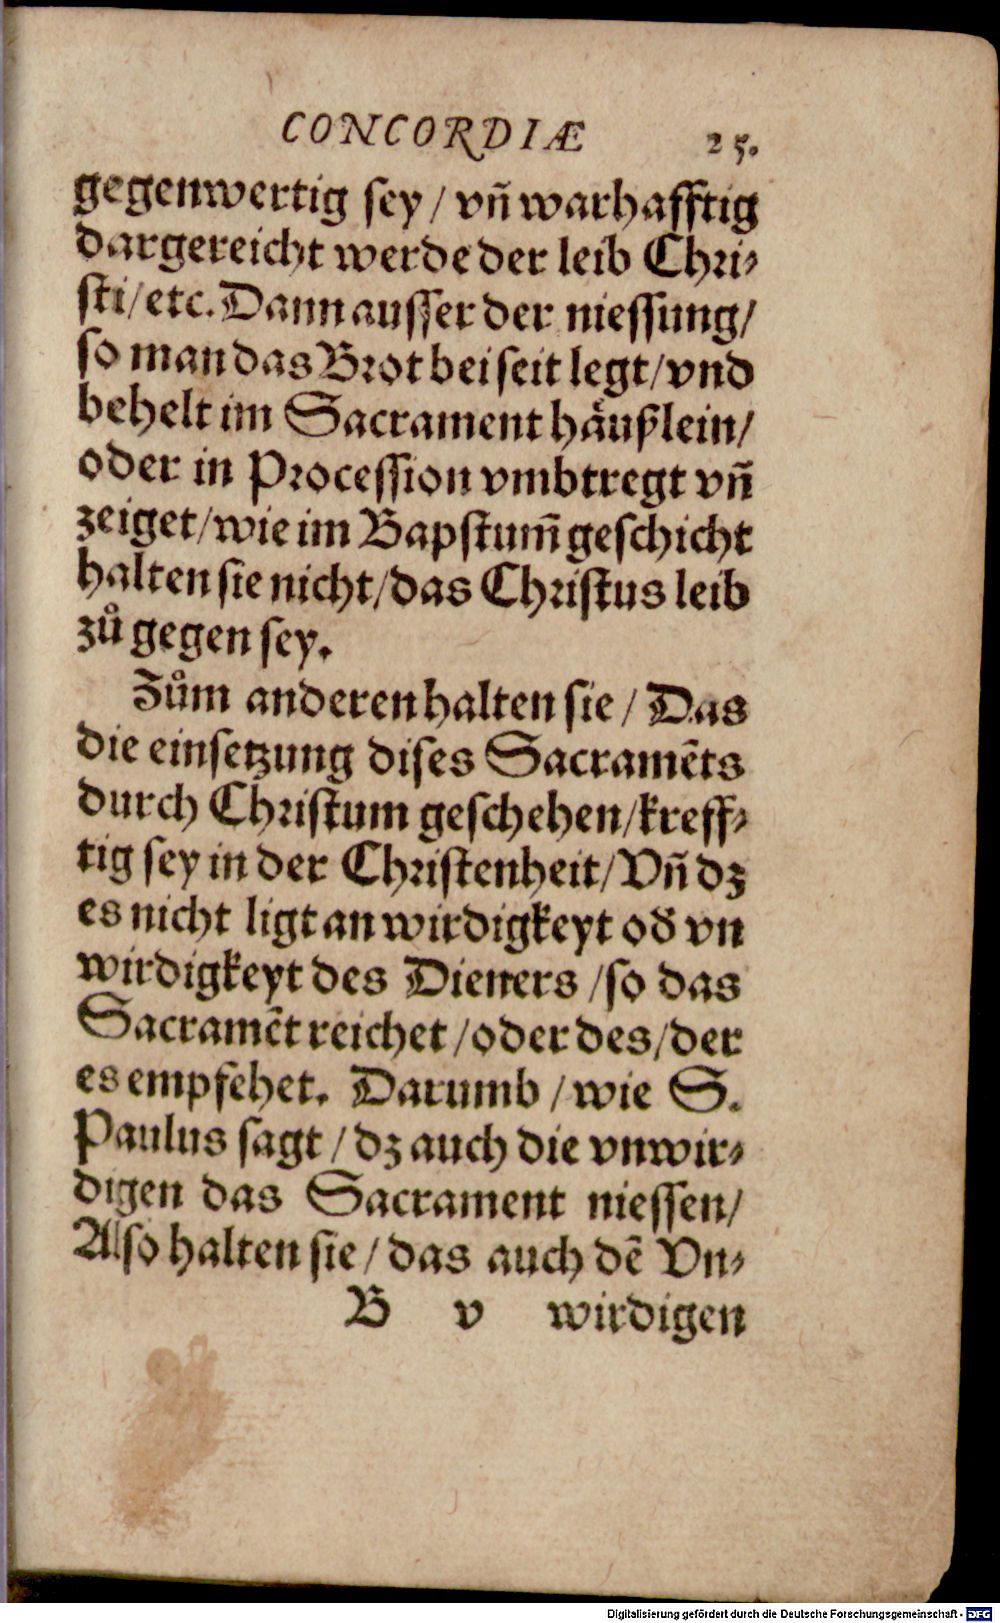 CONCORDIÆ 25.
gegenwertig sey / vñ warhafftig
dargereicht werde der leib Chri⸗
sti / etc. Dann ausser der niessung /
so man das Brot bei seit legt / vnd
behelt im Sacrament häußlein /
oder in Procession vmbtregt vñ
zeiget / wie im Bapstum̃ geschicht
halten sie nicht / das Christus leib
zů gegen sey.
Zům anderen halten sie / Das
die einsetzung dises Sacramẽts
durch Christum geschehen / kreff⸗
tig sey in der Christenheit / Vñ dz
es nicht ligt an wirdigkeyt oď vn
wirdigkeyt des Dieners / so das
Sacramẽt reichet / oder des / der
es empfehet. Darumb / wie S.
Paulus sagt / dz auch die vnwir⸗
digen das Sacrament niessen /
Also halten sie / das auch dẽ Vn⸗
B v wirdigen
Digitalisierung gefördert durch die Deutsche Forschungsgemeinschaft - DFG